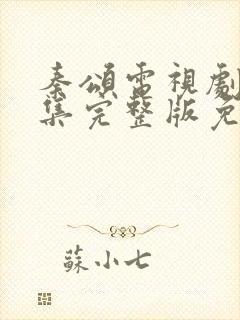 秦頌電視劇
集完整版免
蘇小七